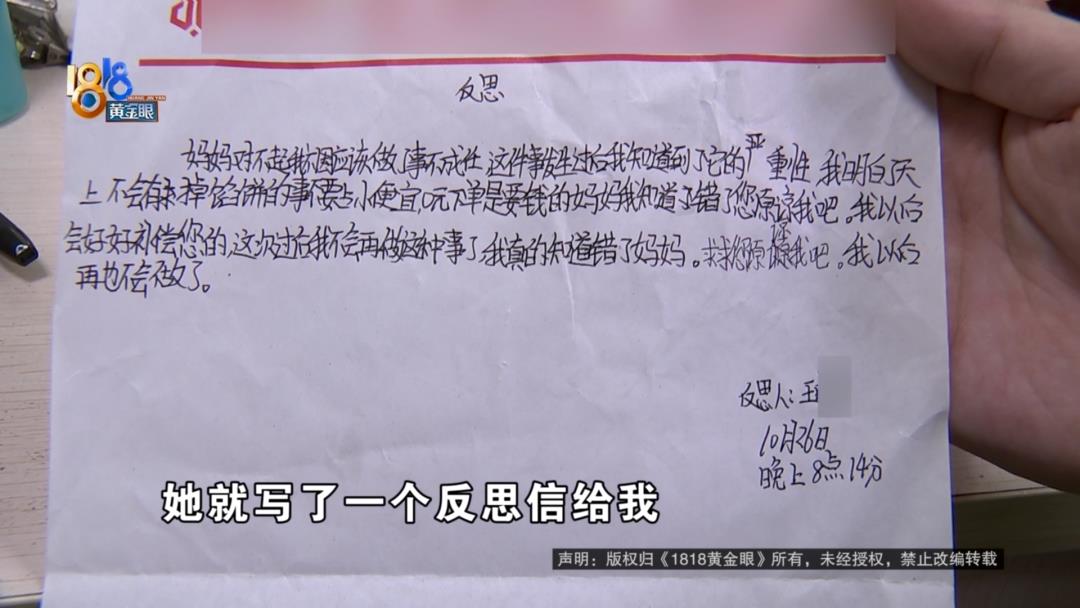 1818
黄金眼
反思
妈妈对不起我不因应该做了事不成任这件事发生过后我知道到了它的严重性我明白了天
上不会有掉馅饼的事不要占小便宜,0元下单是要钱的妈妈我知道了错了您原谅我吧。我以后
会好好补偿您的,这次过后我不会再做这种事了,我真的知道错了妈妈。求求您原谅我吧。我以后
再也不会做了。
反思人:王
10月26日
晚上8点14分
她就写了一个反思信给我
声明:版权归《1818黄金眼》所有,未经授权,禁止改编转载